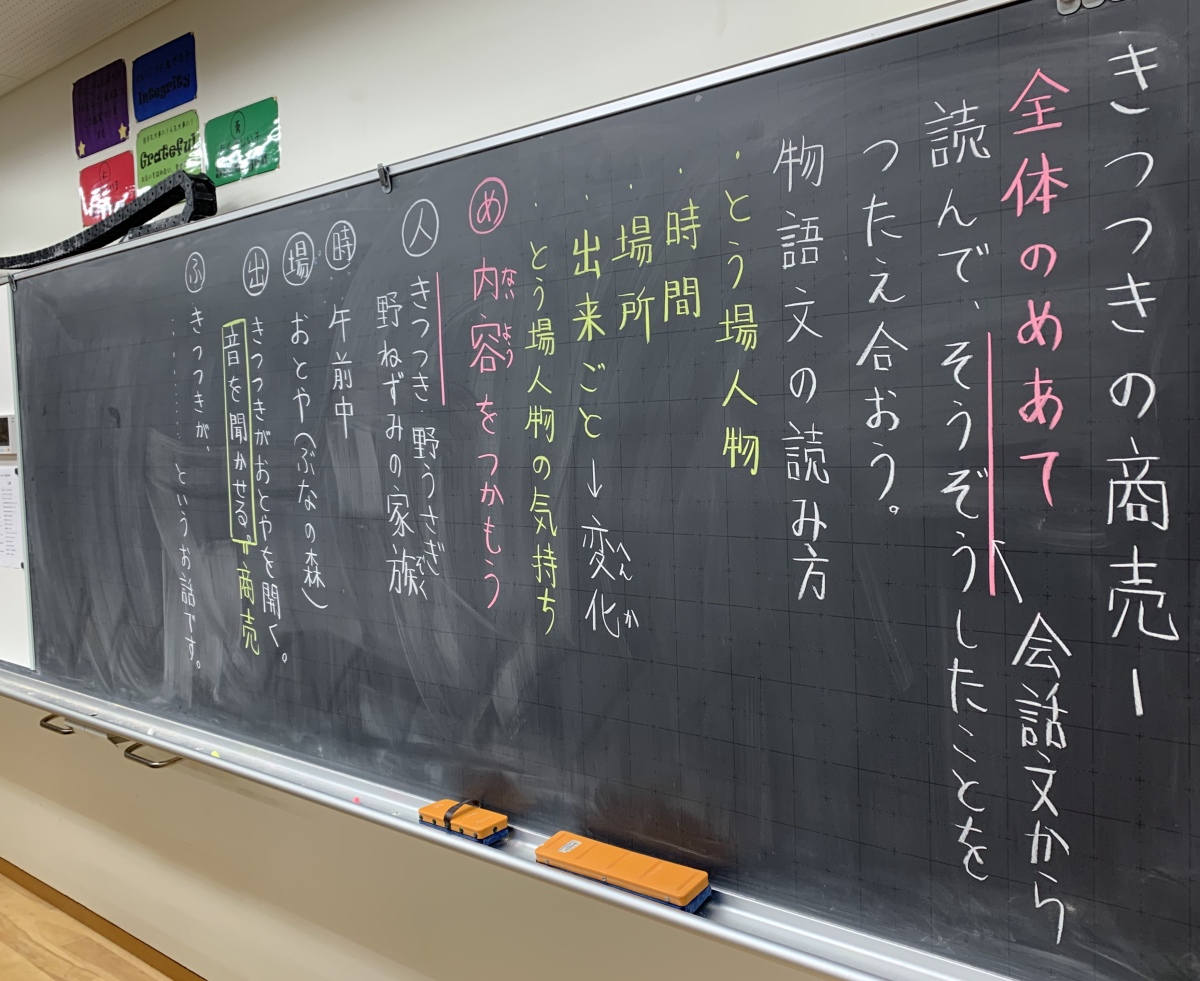 きつつきの商売 一
全体のめあて
読んで、そうぞうしたことを
会話文から
つたえ合おう。
物語文の読み方
・とう場人物
・時間
・場所
・出来ごと→変化
へんか
・とう場人物の気持ち
め 内容をつかもう
ないよう
人 きつつき・野うさぎ
野ねずみの家族
ぞく
時 午前中
場 おとや(ぶなの森)
出 きつつきがおとやを開く。
音を聞かせる。=商売
ふ きつつきが、
………… というお話です。
Integrity
Grateful